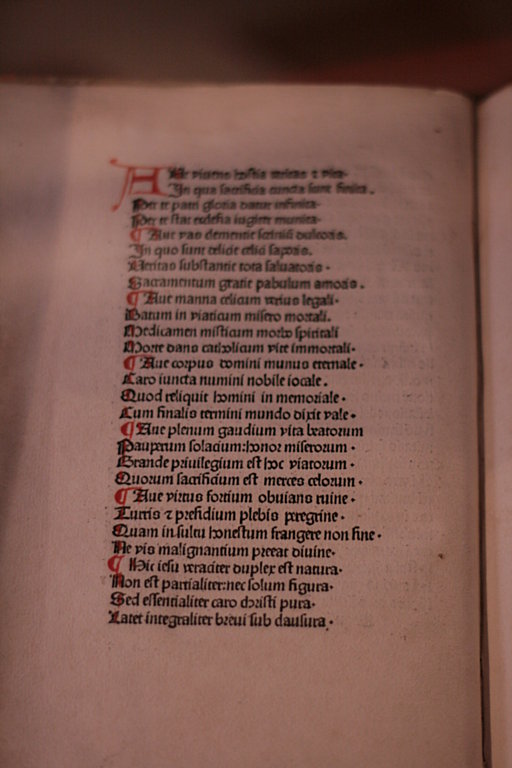 Aue viuens hostia veritas ⁊ vita·
In qua sacrificia cuncta sunt finita.
Per te patri gloria datur infinita·
Per te stat ecclesia iugiter munita·
¶ Aue vas clementie scriniũ dulcoris.
In quo sunt delicie celici saporis.
Veritas substantie tota saluatoris·
Sacramentum gratie pabulum amoris.
¶ Aue manna celicum verius legali·
Datum in viaticum misero mortali.
Medicamen misticum morbo spiritali
Morte dans catholicum vite immortali·
¶ Aue corpus domini munus eternale·
Caro iuncta numini nobile iocale.
Quod reliquit homini in memoriale·
Cum finalis termini mundo dixit vale·
¶ Aue plenum gaudium vita beatorum
Pauperum solacium:honor miserorum·
Grande priuilegium est hoc viatorum·
Quorum sacrificium est merces celorum·
¶ Aue virtus fortium obuians ruine·
Turris ⁊ presidium plebis peregrine·
Quam insultu honestum frangere non fine·
Ne vis malignantium preeat diuine·
¶ Hic iesu veraciter duplex est natura·
Non est partialiter:nec solum figura·
Sed essentialiter caro christi pura·
Latet integraliter breui sub clausura·